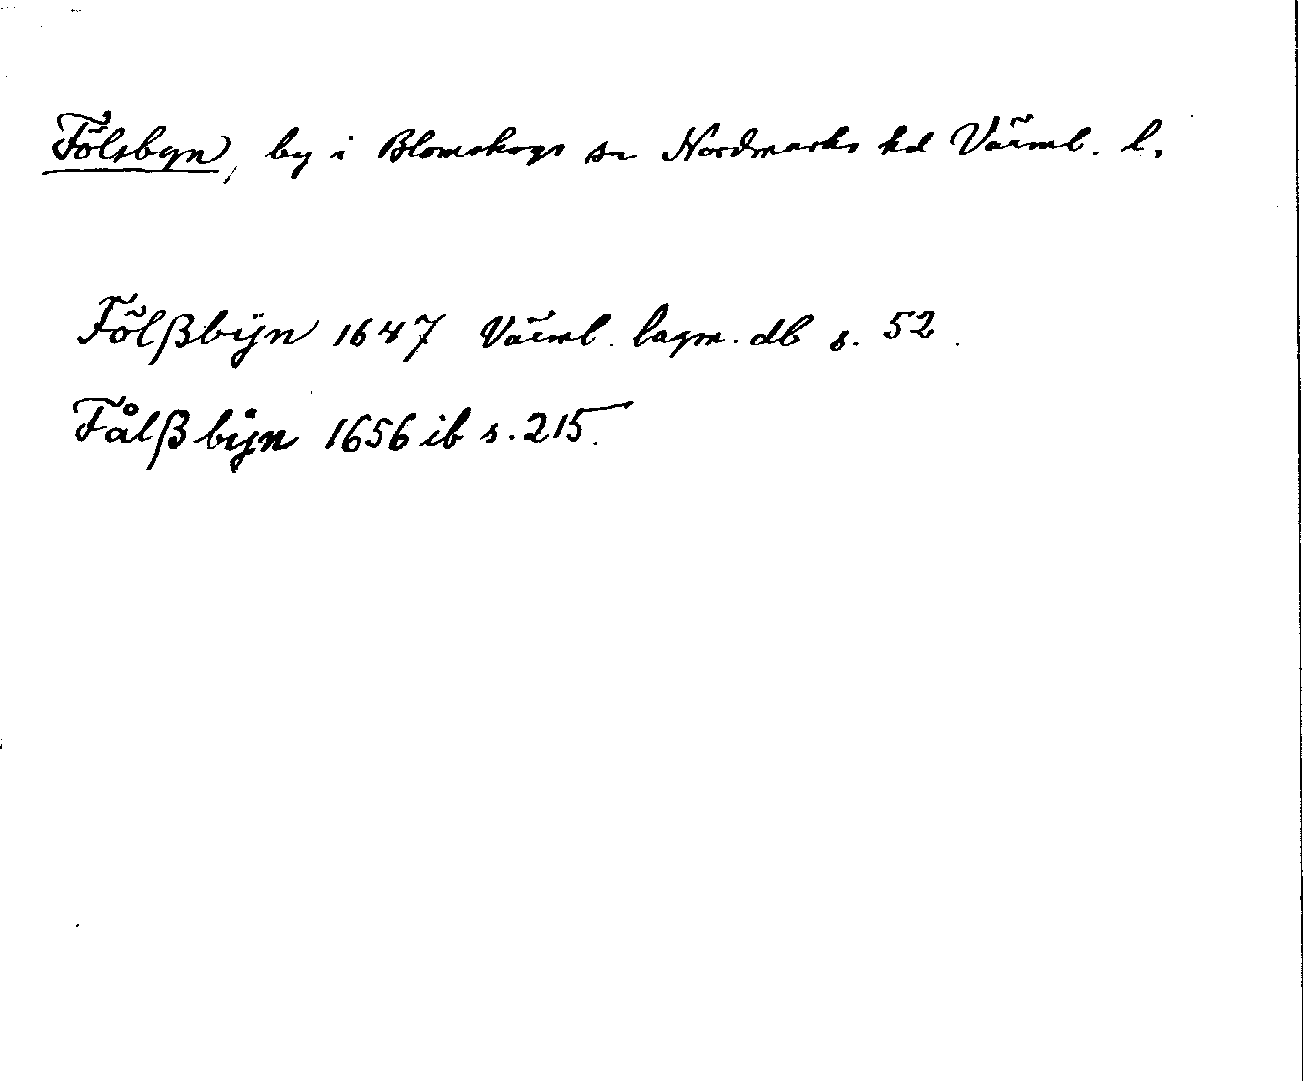 Fölsbyn, by i Blomskogs sn Nordmarks hd Värml. l.
Fölßbÿn 1647 Värml. lagm. db s. 52.
Fålßbÿn 1656 ib s. 215.